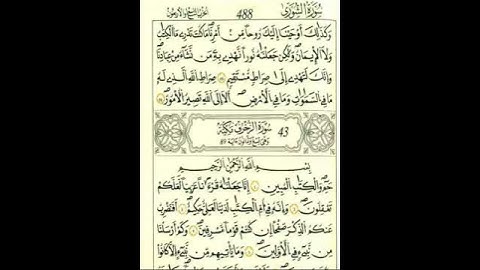 سُورَةُ الشُّورَى 488
وَكَذَٰلِكَ أَوْحَيْنَا إِلَيْكَ رُوحًا مِنْ أَمْرِنَا مَا كُنْتَ تَدْرِي مَا الْكِتَابُ
وَلَا الْإِيمَانُ وَلَٰكِنْ جَعَلْنَاهُ نُورًا نَهْدِي بِهِ مَنْ نَشَاءُ مِنْ عِبَادِنَا
وَإِنَّكَ لَتَهْدِي إِلَىٰ صِرَاطٍ مُسْتَقِيمٍ صِرَاطِ اللَّهِ الَّذِي لَهُ
مَا فِي السَّمَاوَاتِ وَمَا فِي الْأَرْضِ أَلَا إِلَى اللَّهِ تَصِيرُ الْأُمُورُ
43 سُورَةُ الزُّخْرُفِ مَكِّيَّة
بِسْمِ اللَّهِ الرَّحْمَٰنِ الرَّحِيمِ
حم وَالْكِتَابِ الْمُبِينِ إِنَّا جَعَلْنَاهُ قُرْآنًا عَرَبِيًّا لَعَلَّكُمْ
تَعْقِلُونَ وَإِنَّهُ فِي أُمِّ الْكِتَابِ لَدَيْنَا لَعَلِيٌّ حَكِيمٌ أَفَنَضْرِبُ
عَنْكُمُ الذِّكْرَ صَفْحًا أَنْ كُنْتُمْ قَوْمًا مُسْرِفِينَ وَكَمْ أَرْسَلْنَا
مِنْ نَبِيٍّ فِي الْأَوَّلِينَ وَمَا يَأْتِيهِمْ مِنْ نَبِيٍّ إِلَّا كَانُوا